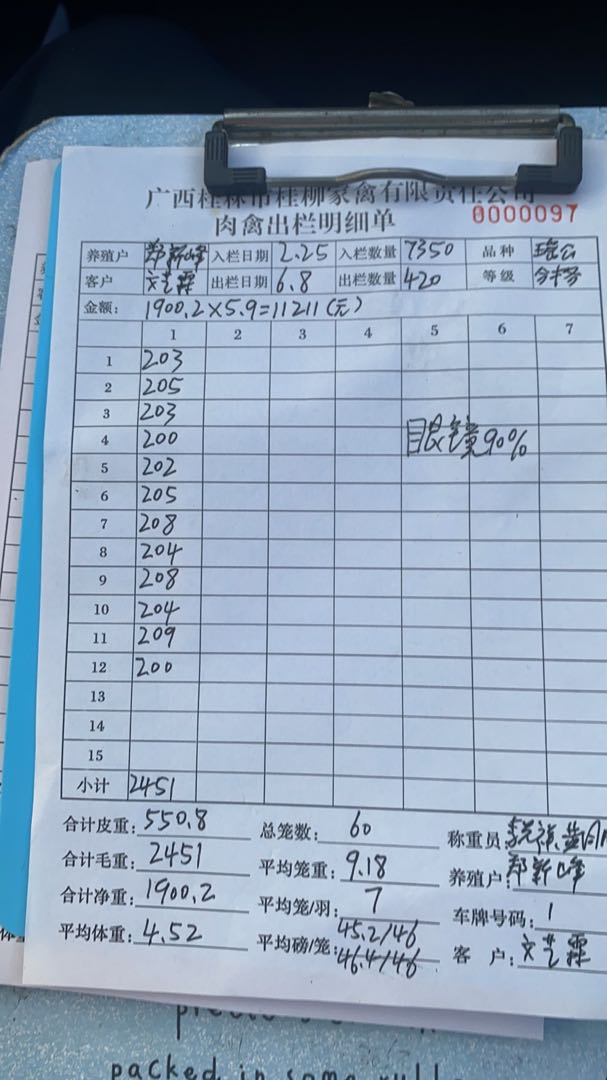 广西桂林市桂柳家禽有限责任公司
肉禽出栏明细单
0000097
养殖户 郑新峰 入栏日期 2.25 入栏数量 7350 品种
客户 文艺霖 出栏日期 6.8 出栏数量 420 等级
金额: 1900.2×5.9=11211(元)
1 2 3 4 5 6 7
1 203
2 205
3 203
4 200 眼镜90%
5 202
6 205
7 208
8 204
9 208
10 204
11 209
12 200
13
14
15
小计 2451
合计皮重: 550.8 总笼数: 60 称重员:
合计毛重: 2451 平均笼重: 9.18 养殖户: 郑新峰
合计净重: 1900.2 平均笼/羽: 7 车牌号码: 1
平均体重: 4.52 平均磅/笼: 45.2/46 客户: 文艺霖
46.4/46
packed in some